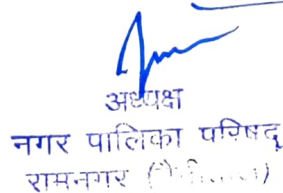 अध्यक्ष
नगर पालिका परिषद्
रामनगर